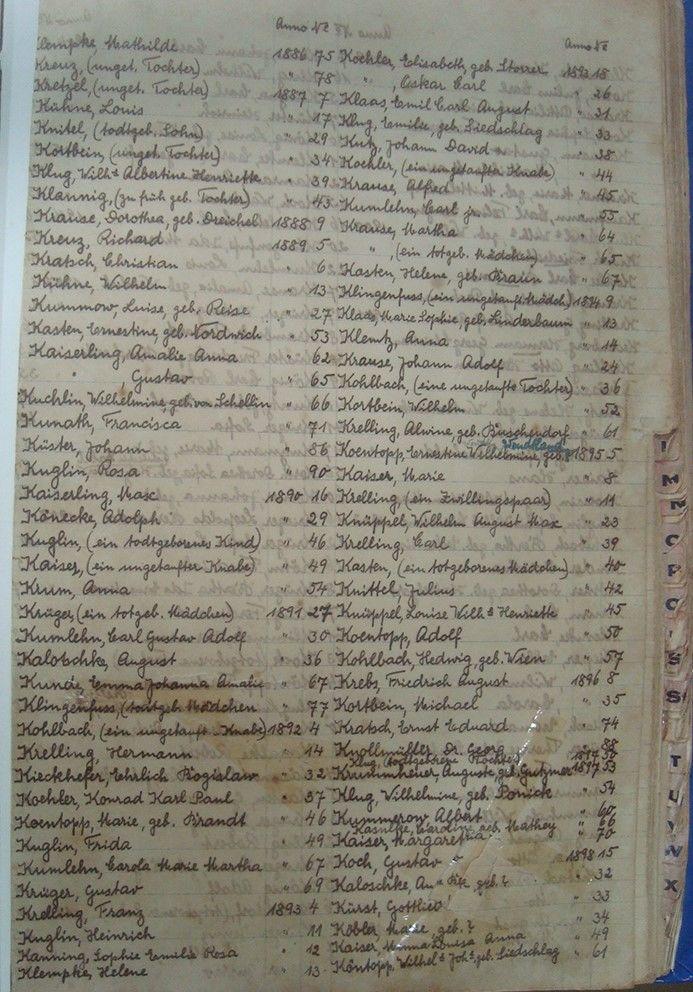 Anno No
Klempke, Mathilde 1886 75
Kreuz, (unget. Tochter) " 78
Kretzel, (unget. Tochter) 1887 7
Kühne, Louis " 17
Knitel, (todtgeb. Sohn) " 29
Kortbein, (unget. Tochter) " 34
Klug, Wilh. Albertine Henriette " 39
Klannig, (zu früh geb. Tochter) " 43
Krause, Dorothea, geb. Dreichel 1888 9
Kreuz, Richard 1889 5
Kratsch, Christian " 6
Kühne, Wilhelm " 13
Kummow, Luise, geb. Reise " 27
Kasten, Ernestine, geb. Nordwich " 53
Kaiserling, Amalie Anna " 62
" Gustav " 65
Kuchlin, Wilhelmine, geb. von Schöllin " 66
Kunath, Francisca " 71
Küster, Johann " 86
Kuglin, Rosa " 90
Kaiserling, Max 1890 16
Könecke, Adolph " 29
Kuglin, (ein todtgeborenes Kind) " 46
Kaiser, (ein ungetaufter Knabe) " 49
Krum, Anna " 54
Krüger, (ein totgeb. Mädchen) 1891 27
Kumlehn, Carl Gustav Adolf " 30
Kalotschke, August " 36
Emma Johanna Amalie " 67
Klingenfuss, (todtgeb. Mädchen " 77
Kohlbach, (ein ungetauft. Knabe) 1892 4
Krelling, Hermann " 14
Kieckhefer, Ehrlich Bogislaw " 32
Koehler, Konrad Karl Paul " 37
Koentopp, Marie, geb. Brandt " 46
Kuglin, Frida " 49
Kumlehn, Carola Marie Martha " 67
Krüger, Gustav " 69
Krelling, Franz 1893 4
Kuglin, Heinrich " 11
Kanning, Sophie Emilie Rosa " 12
Klempke, Helene " 13
Anno No
Koehler, Elisabeth, geb. Storrer 1893 18
" , Oskar Carl " 26
Klaas, Emil Carl August " 31
Klug, Emilie, geb. Liedschlag " 33
Kutz, Johann David " 38
Koehler, (ein ungetaufter Knabe) " 44
Krause, Alfred " 45
Kumlehn, Carl jr. " 55
Krause, Martha " 64
" , (ein totgeb. Mädchen) " 65
Kasten, Helene, geb. Braun " 67
Klingenfuss, (ein ungetauft. Mädch) 1894 9
Klaas, Marie Sophie, geb. Linderbaum " 13
Klemtz, Anna " 14
Krause, Johann Adolf " 24
Kohlbach, (eine ungetaufte Tochter) " 36
Kortbein, Wilhelm " 52
Krelling, Alwine, geb. Buschendorf " 61
Wendland
Koentopp, Ernestine Wilhelmine, geb. 1895 5
Kaiser, Marie " 8
Krelling, (ein Zwillingspaar) " 11
Knüppel, Wilhelm August Max " 23
Krelling, Carl " 39
Kasten, (ein totgeborenes Mädchen) " 40
Knittel, Julius " 42
Knüppel, Louise Wilh. Henriette " 45
Koentopp, Adolf " 50
Kohlbach, Hedwig, geb. Wien " 57
Krebs, Friedrich August 1896 8
Kortbein, Michael " 35
Kratsch, Ernst Eduard " 74
Knollmüller, Dr. Georg " 88
Klug, (todtgeborene Tochter) 1897
Krummheuer, Auguste, geb. Gutzmer 1897 53
Klug, Wilhelmine, geb. Ponick " 54
Kummerow, Albert " 60
Caroline, geb. Mathey " 66
Kaiser, Margaretha " 70
Koch, Gustav 1898 15
Kaloschke, geb. ? " 32
Kürst, Gottlieb " 33
Köbler, Marie, geb. ? " 34
Kaiser, Minna Louisa Anna " 49
Köntopp, Wilhel. Joh., geb. Liedschlag " 61
I
M
N
O
P
S
S
T
U
V
W
X